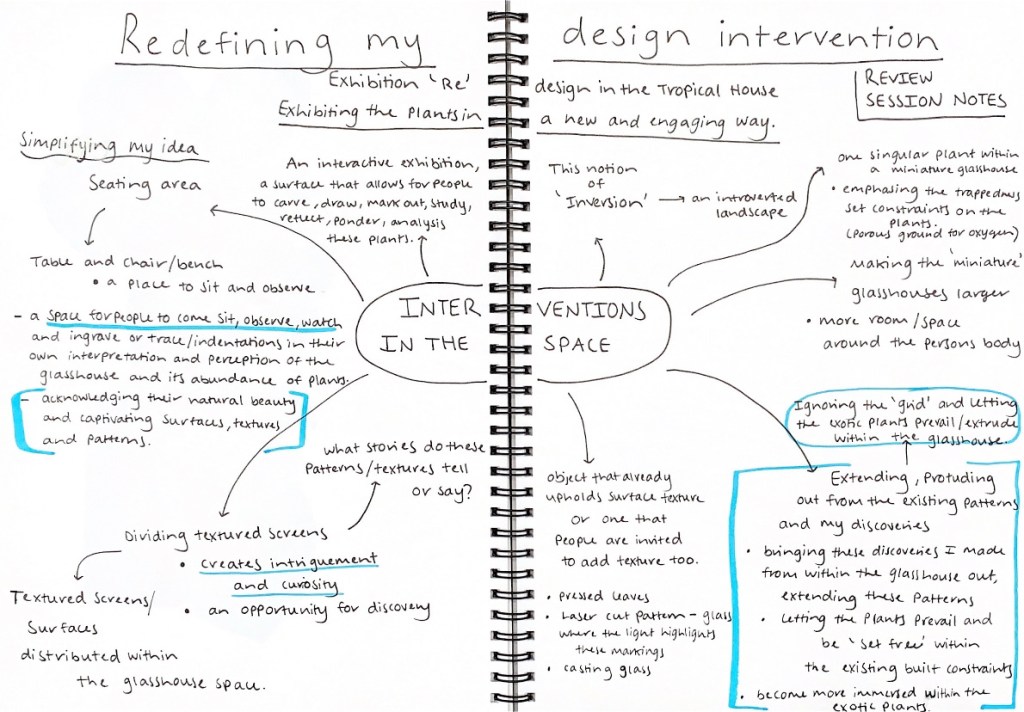 Redefining my design intervention
Exhibition 'Re'
Exhibiting the Plants in
design in the Tropical House
a new and engaging way.
REVIEW
SESSION NOTES
Simplifying my idea
Seating area
Table and chair/bench
• a place to sit and observe
- a space for people to come sit, observe, watch
and ingrave or trace/indentations in their
own interpretation and perception of the
glasshouse and its abundance of plants.
- acknowledging their natural beauty
and captivating surfaces, textures
and patterns.
An interactive exhibition,
a surface that allows for people
to carve, draw, mark out, study,
reflect, ponder, analysis
these plants.
INTERVENTIONS
IN THE SPACE
what stories do these
patterns/textures tell
or say?
Dividing textured screens
• creates intriguement
and curiosity
• an opportunity for discovery
Textured screens/
surfaces
distributed within
the glasshouse space.
This notion
of
'Inversion' → an introverted
landscape
one singular plant within
a miniature glasshouse
• emphasing the trappedness
set constraints on the
plants.
(porous ground for oxygen)
Making the 'miniature'
glasshouses larger
• more room/space
around the persons body
Ignoring the 'grid' and letting
the exotic plants prevail/extrude
within the glasshouse.
Extending, protuding
out from the existing patterns
and my discoveries
• bringing these discoveries I made
from within the glasshouse out,
extending these patterns
• Letting the plants prevail and
be 'set free' within
the existing built constraints
• become more immersed within the
exotic plants.
object that already
upholds surface texture
or one that
people are invited
to add texture too.
• pressed leaves
• Laser cut pattern - glass
where the light highlights
these markings
• casting glass